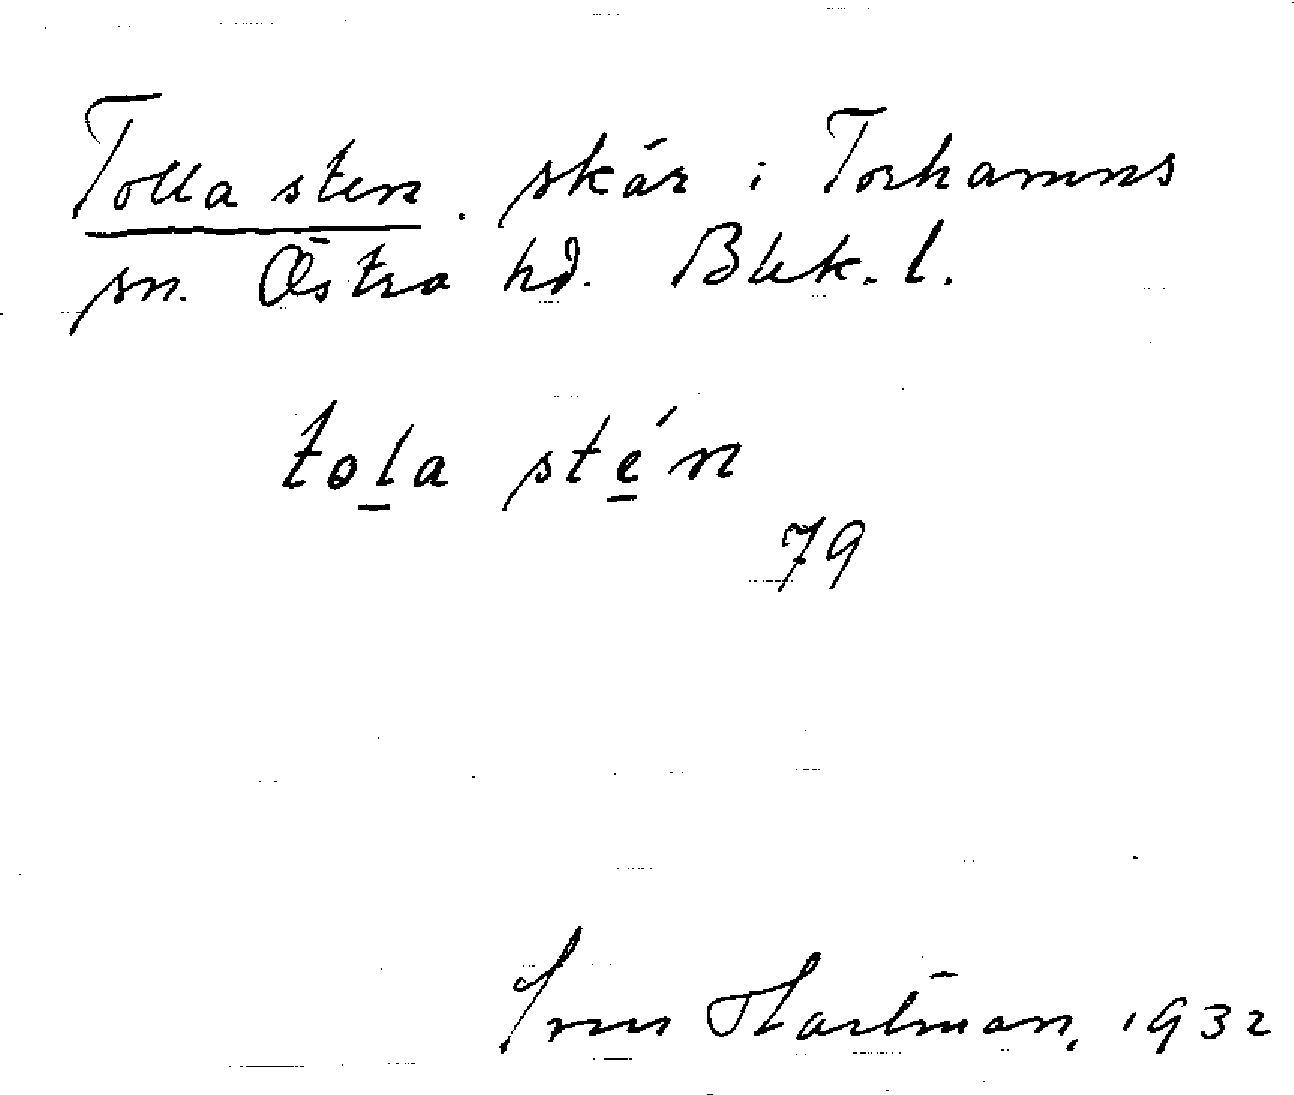 Tolla sten. skär i Torhamns
sn. Östra hd. Blek. l.
tola stén
79
Hartman, 1932